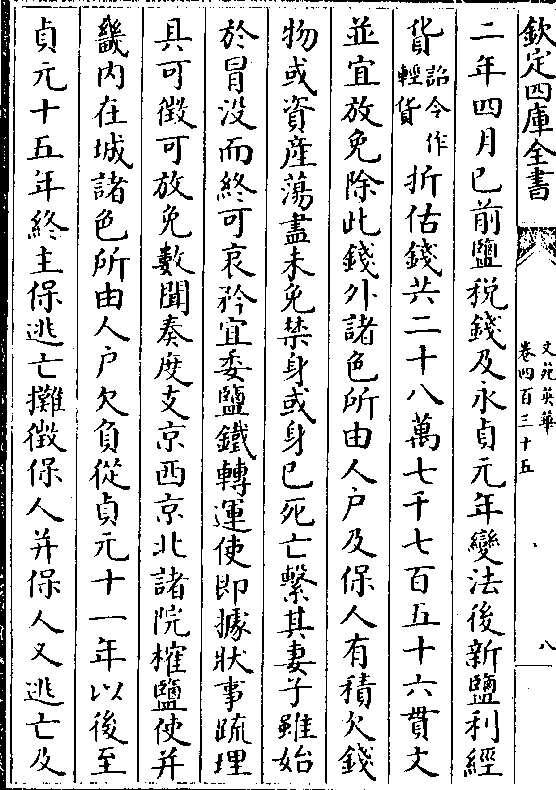 欽定四庫全書
文苑英華
卷四百三十五
八
二年四月已前鹽税錢及永貞元年變法後新鹽利經
貨詔令作輕貨折估錢共二十八萬七千七百五十六貫文
並宜放免除此錢外諸色所由人户及保人有積欠錢
物或資産蕩盡未免禁身或身已死亡繫其妻子雖始
於冒没而終可哀矜宜委鹽鐵轉運使即據狀事疏理
具可徵可放免數聞奏度支京西京北諸院榷鹽使并
畿内在城諸色所由人户欠負從貞元十一年以後至
貞元十五年終主保逃亡攤徵保人并保人又逃亡及